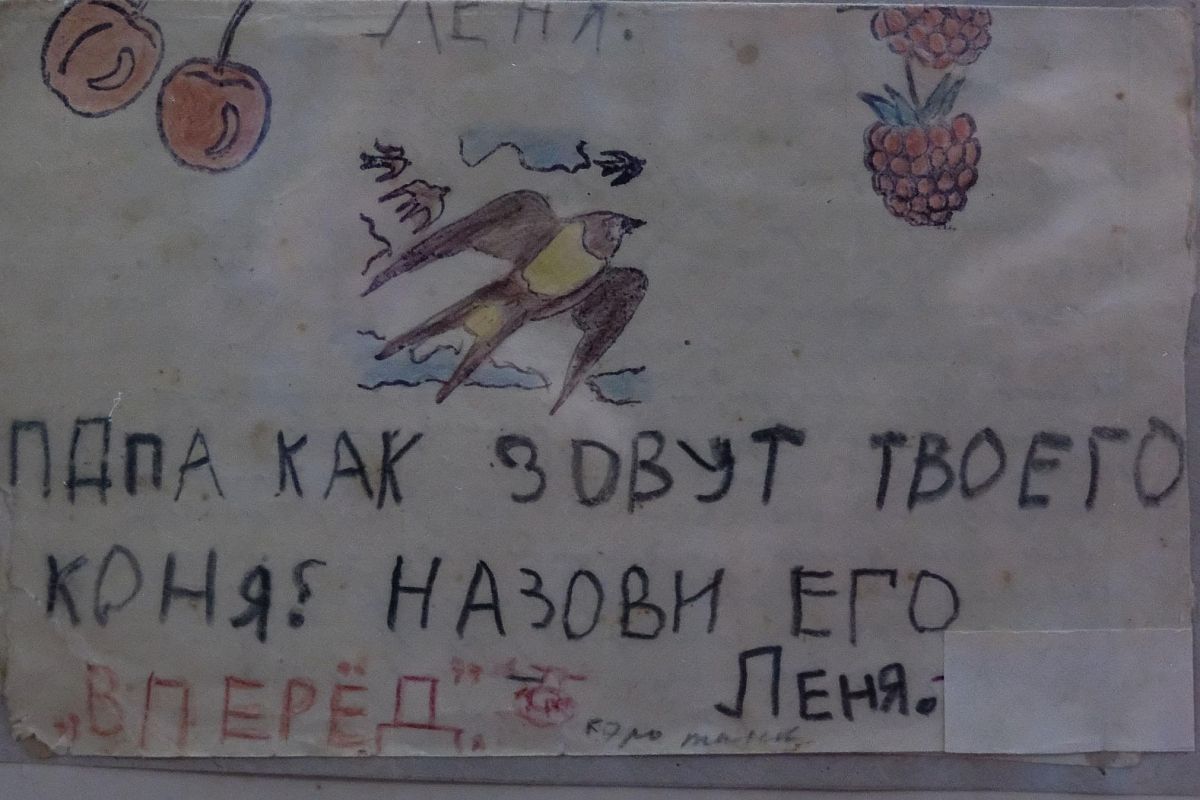 ЛЕНЯ.
ПАПА КАК ЗОВУТ ТВОЕГО
КОНЯ? НАЗОВИ ЕГО
„ВПЕРЁД”.
ЛЕНЯ.